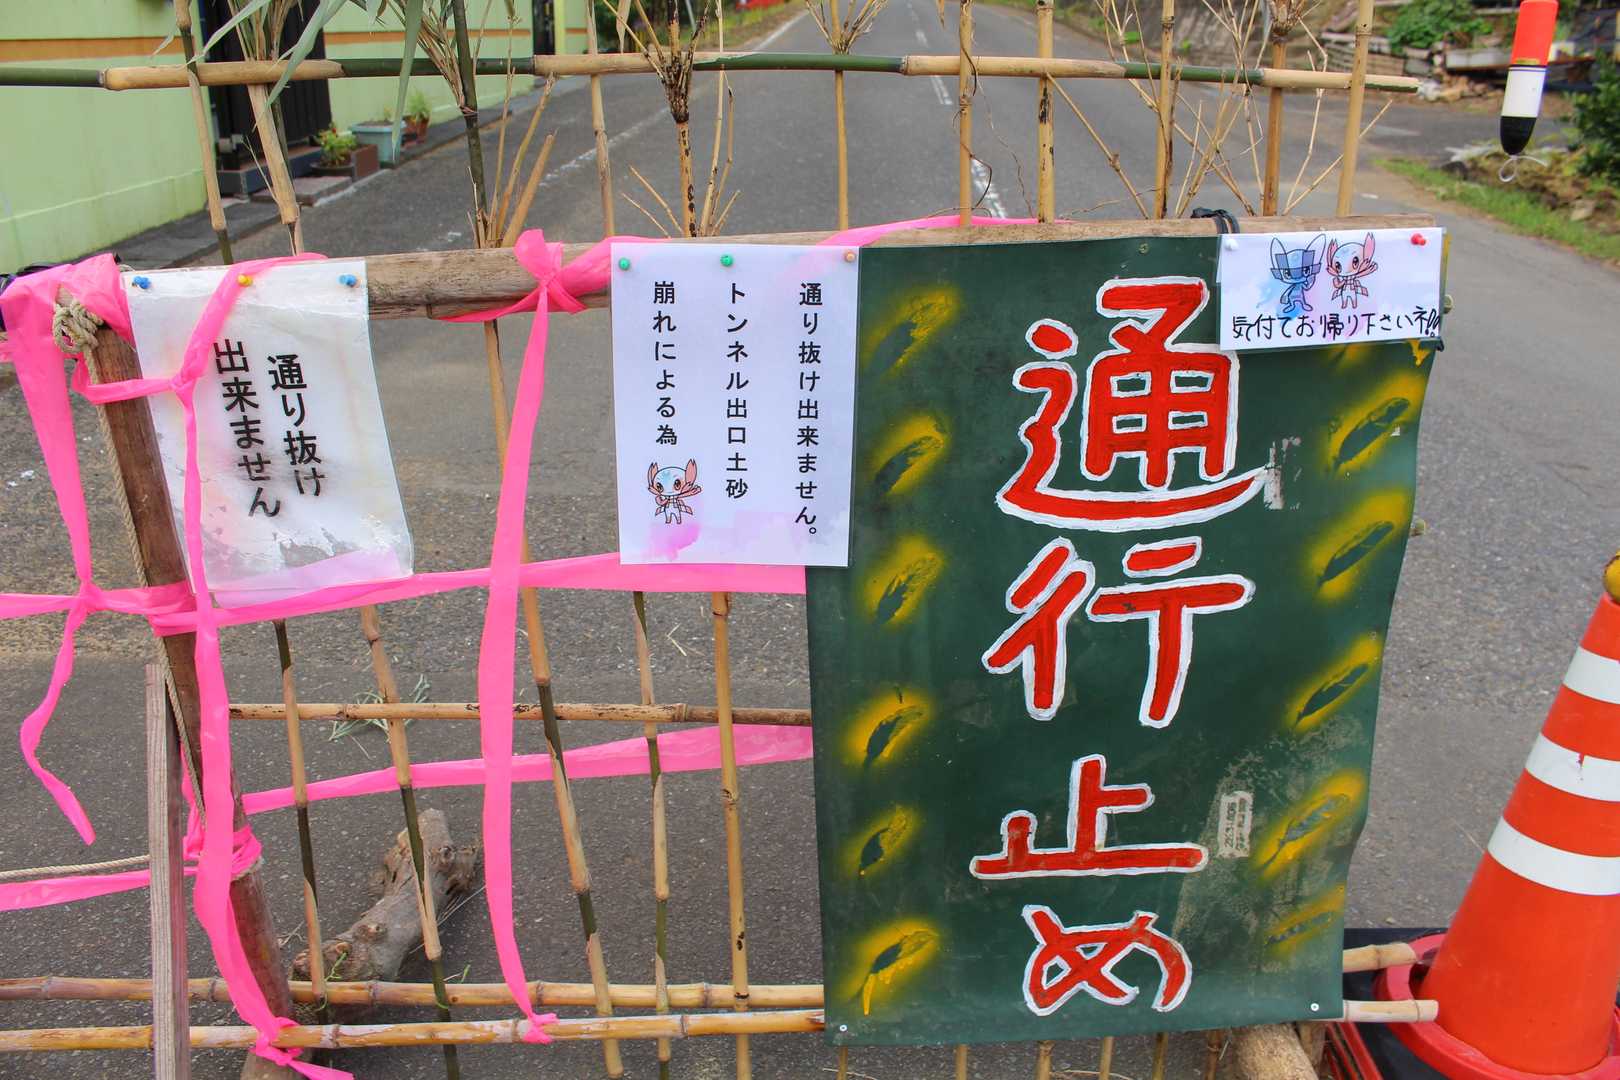 通り抜け
出来ません
通り抜け出来ません。
トンネル出口土砂
崩れによる為
通行止め
気付てお帰り下さいネ!!